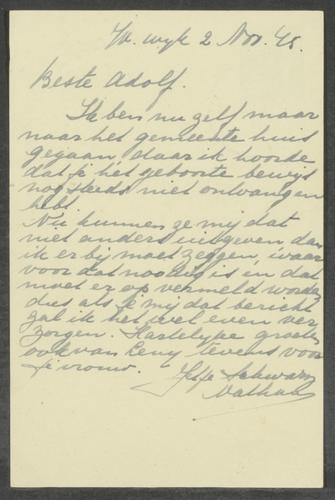 Kr. wijk 2 Nov. 45.
Beste Adolf.
Ik ben nu zelf maar
naar het gemeente huis
gegaan, daar ik hoorde
dat je het geboorte bewijs
nog steeds niet ontvangen
hebt.
Nu kunnen ze mij dat
niet anders uitgeven dan
ik er bij moet zeggen, waar
voor dat noodig is en dat
moet er op vermeld worden
dus als je mij dat bericht
zal ik het wel even ver
zorgen. Hartelijke groeten
ook van Leny tevens voor
je vrouw.
Schwarz
Nathan